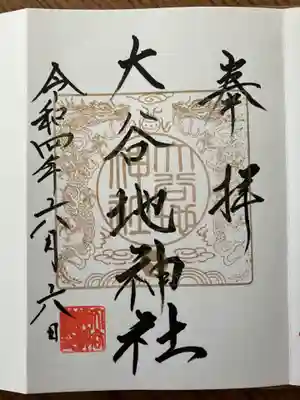 奉拝
大谷地神社
令和四年六月六日
大谷地神社